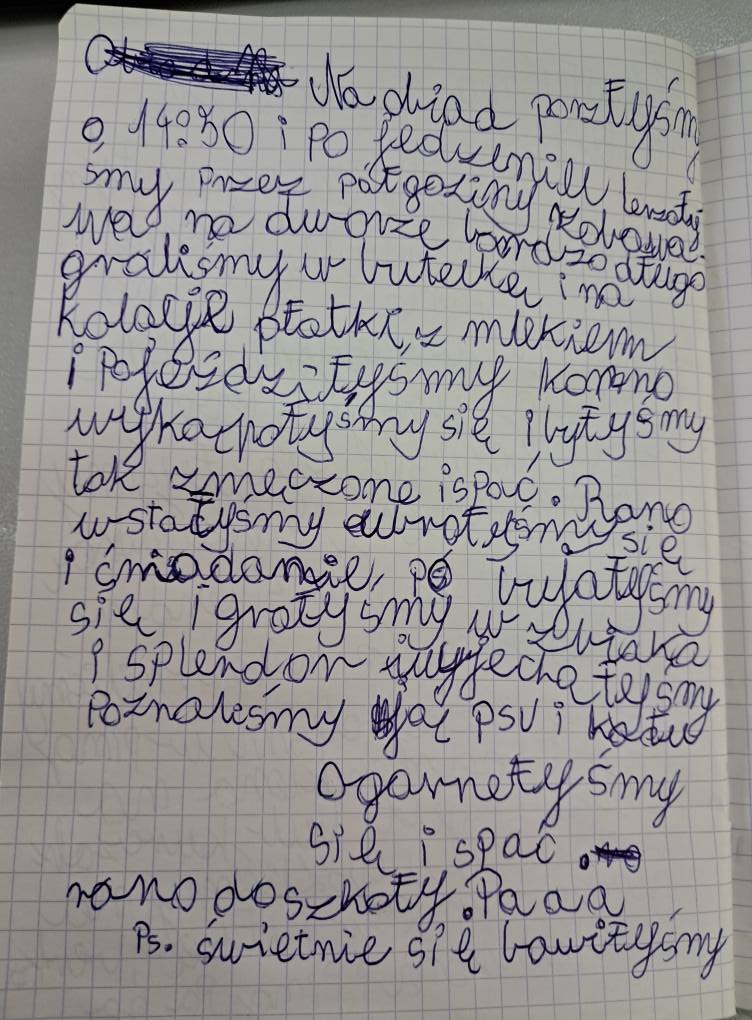 Na obiad poszłyśm
o 14:30 i po jedzeniu leżały
śmy przez półgodziny
na dworze bardzo długo
graliśmy w butelkę i na
kolację płatki z mlekiem
i pojeździłyśmy konno
wykąpołyśmy się i byłyśmy
tak zmęczone i spać. Rano
wstałyśmy się
i śniadanie, po bujałyśmy
się i grałyśmy w zbijaka
i splendor i wyjechałyśmy
poznaliśmy ją psu i kotu
Ogarnełyśmy
się i spać.
rano do szkoły. Pa a a
Ps. świetnie się bawiłyśmy